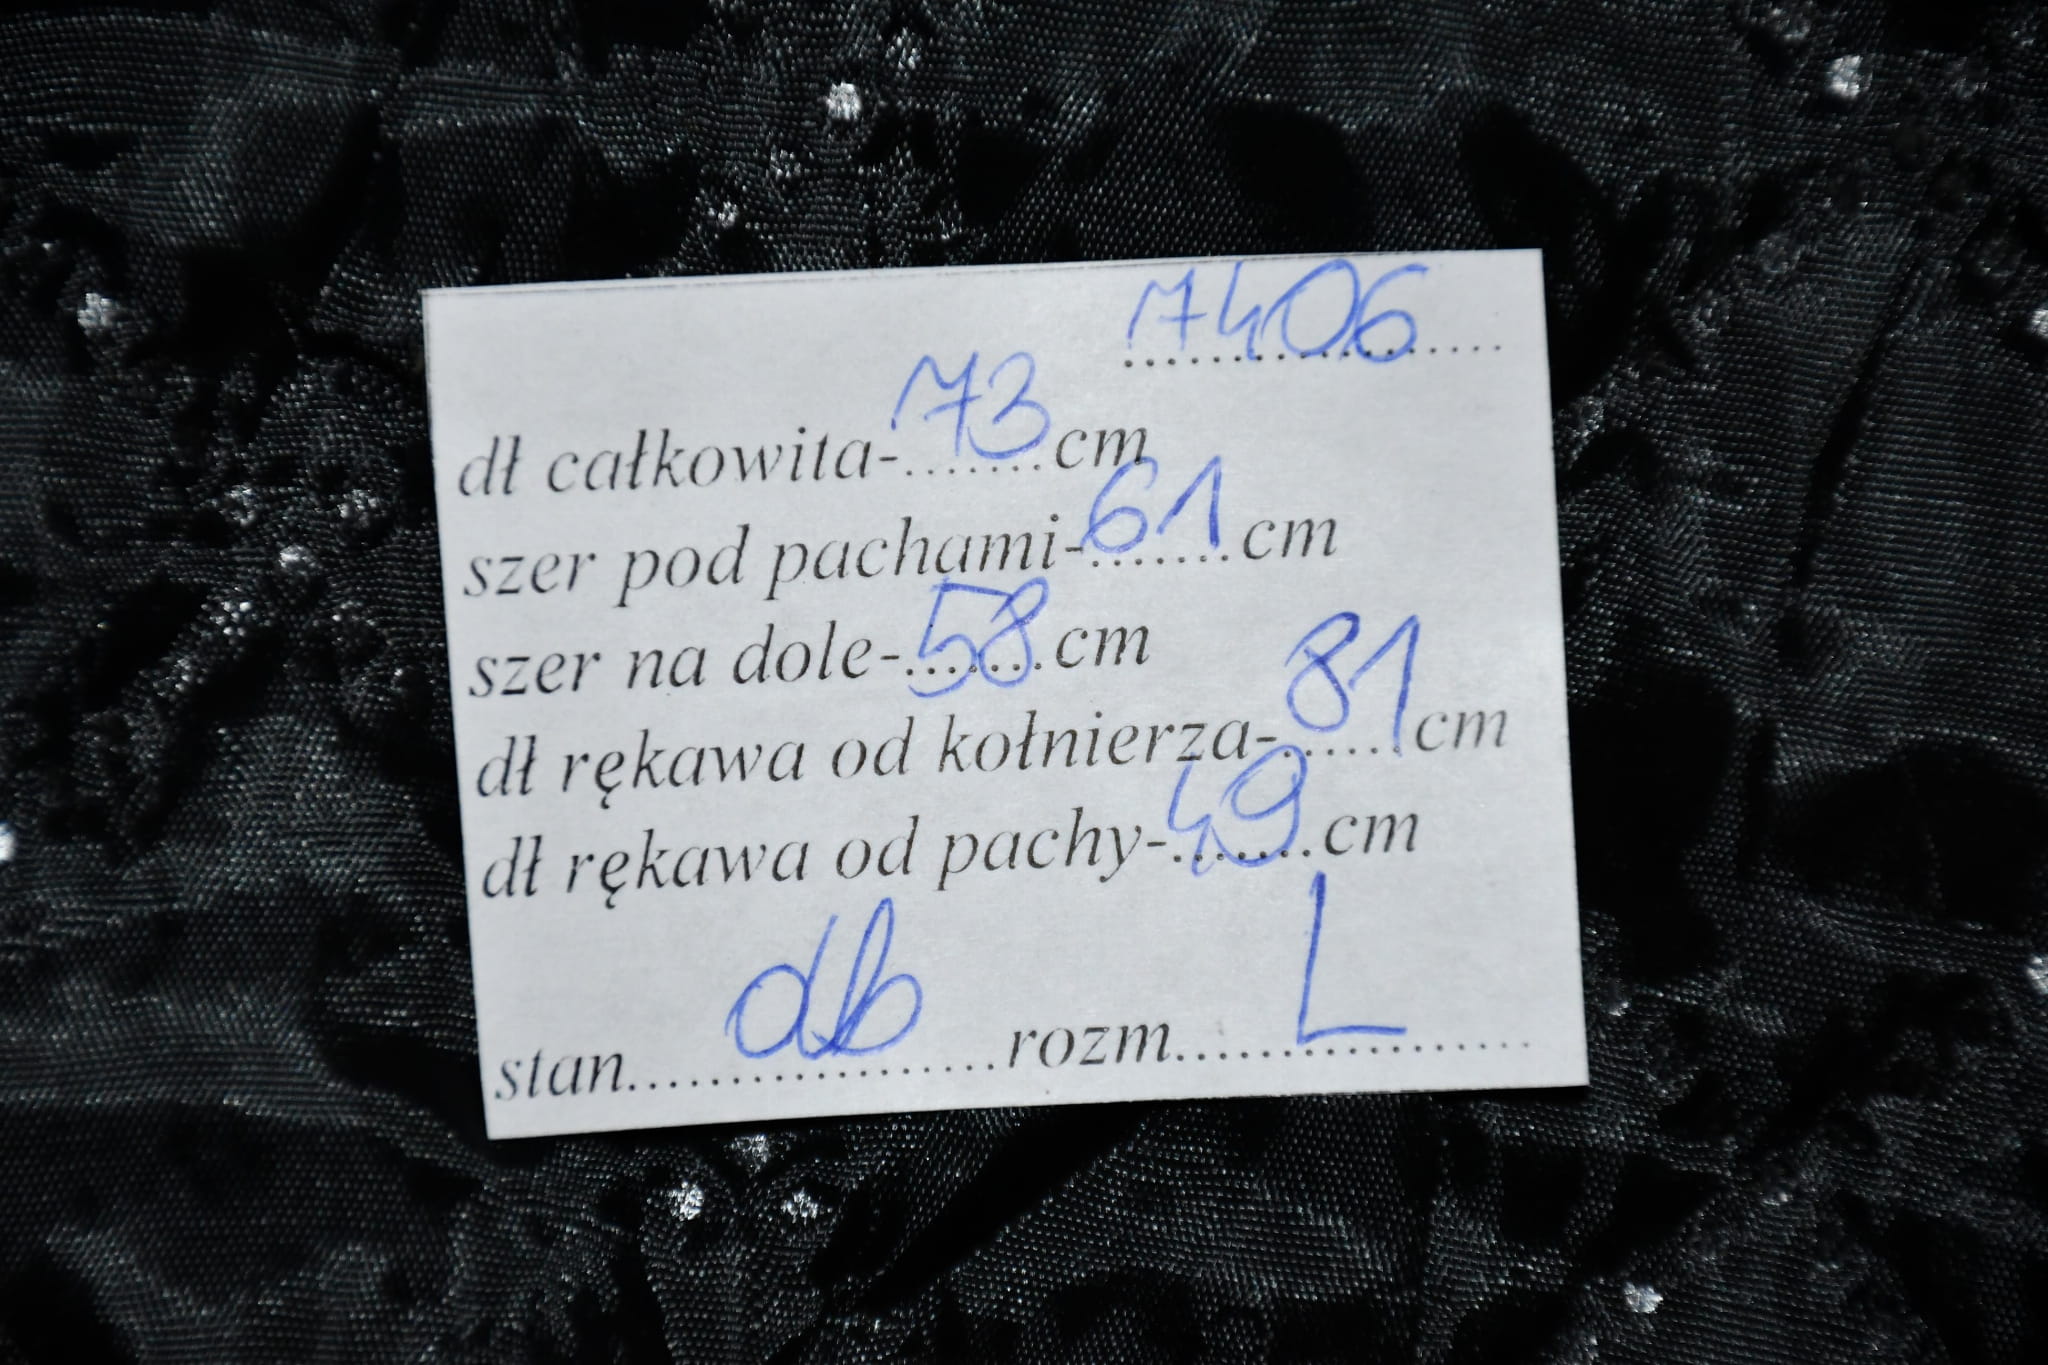 7406
dł całkowita-73cm
szer pod pachami-61cm
szer na dole-58cm
dł rękawa od kołnierza-81cm
dł rękawa od pachy-49cm
stan db rozm L